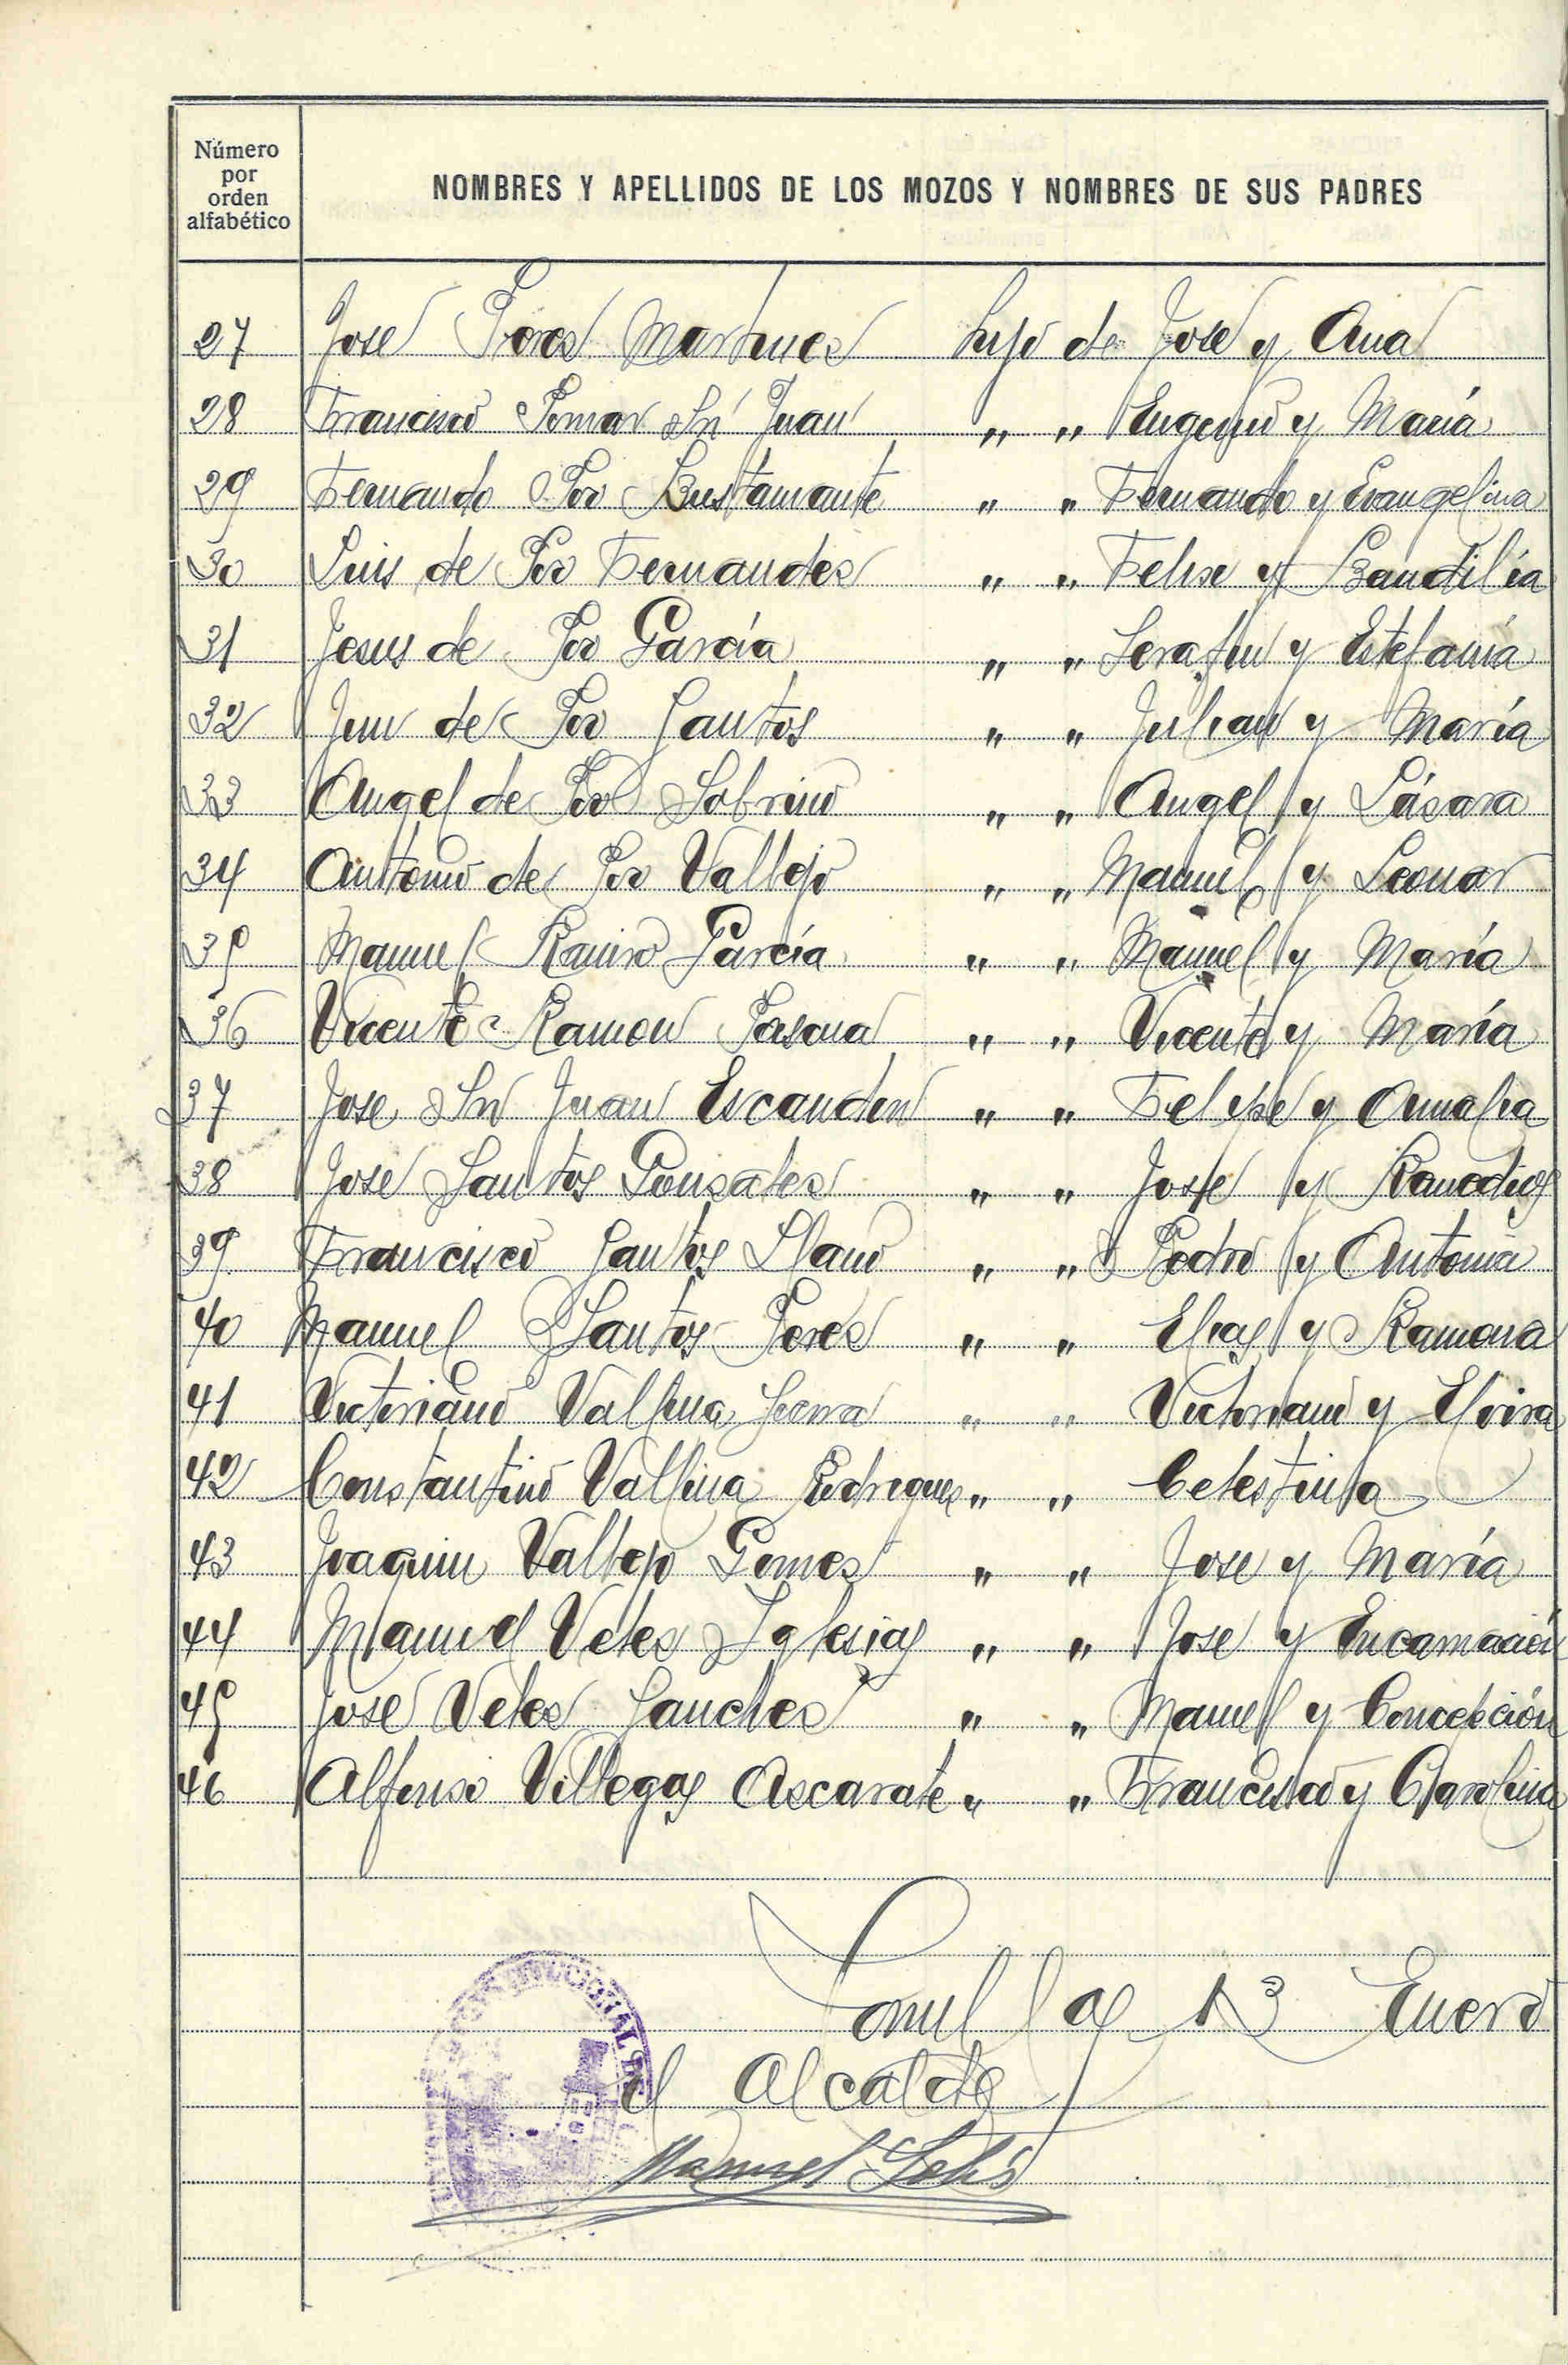 Número
por
orden
alfabético
NOMBRES Y APELLIDOS DE LOS MOZOS Y NOMBRES DE SUS PADRES
27 Jose Peres Martines hijo de Jose y Ana
28 Francisco Pomar Sn Juan " " Eugenio y María
29 Fernando Poo Bustamante " " Fernando y Evangelina
30 Luis de Poo Fernandes " " Felise y Baudilia
31 Jesus de Poo García " " Serafin y Estefanía
32 de Poo Santos " " Julian y María
33 Angel de Poo Sobrino " " Angel y Lásara
34 Antonio de Poo Vallejo " " Manuel y Leonor
35 Manuel Ramiro García " " Manuel y María
36 Vicente Ramon " " Vicente y María
37 Jose Sn Juan Escandon " " Felipe y Amalia
38 Jose Santos Gonsales " " Jose y
39 Francisco Santos Llano " " Pedro y Antonia
40 Manuel Santos Peres " " Elias y Ramona
41 Victoriano Vallina " " Victoriano y Elvira
42 Constantino Vallina Rodrigues " " Celestina
43 Joaquin Vallejo Gomes " " Jose y María
44 Manuel Veles Iglesias " " Jose y Encarnación
45 Jose Veles Sanches " " Manuel y Concepción
46 Alfonso Villegas Ascarate " " Francisco y Carolina
13 Enero
el Alcalde
Manuel